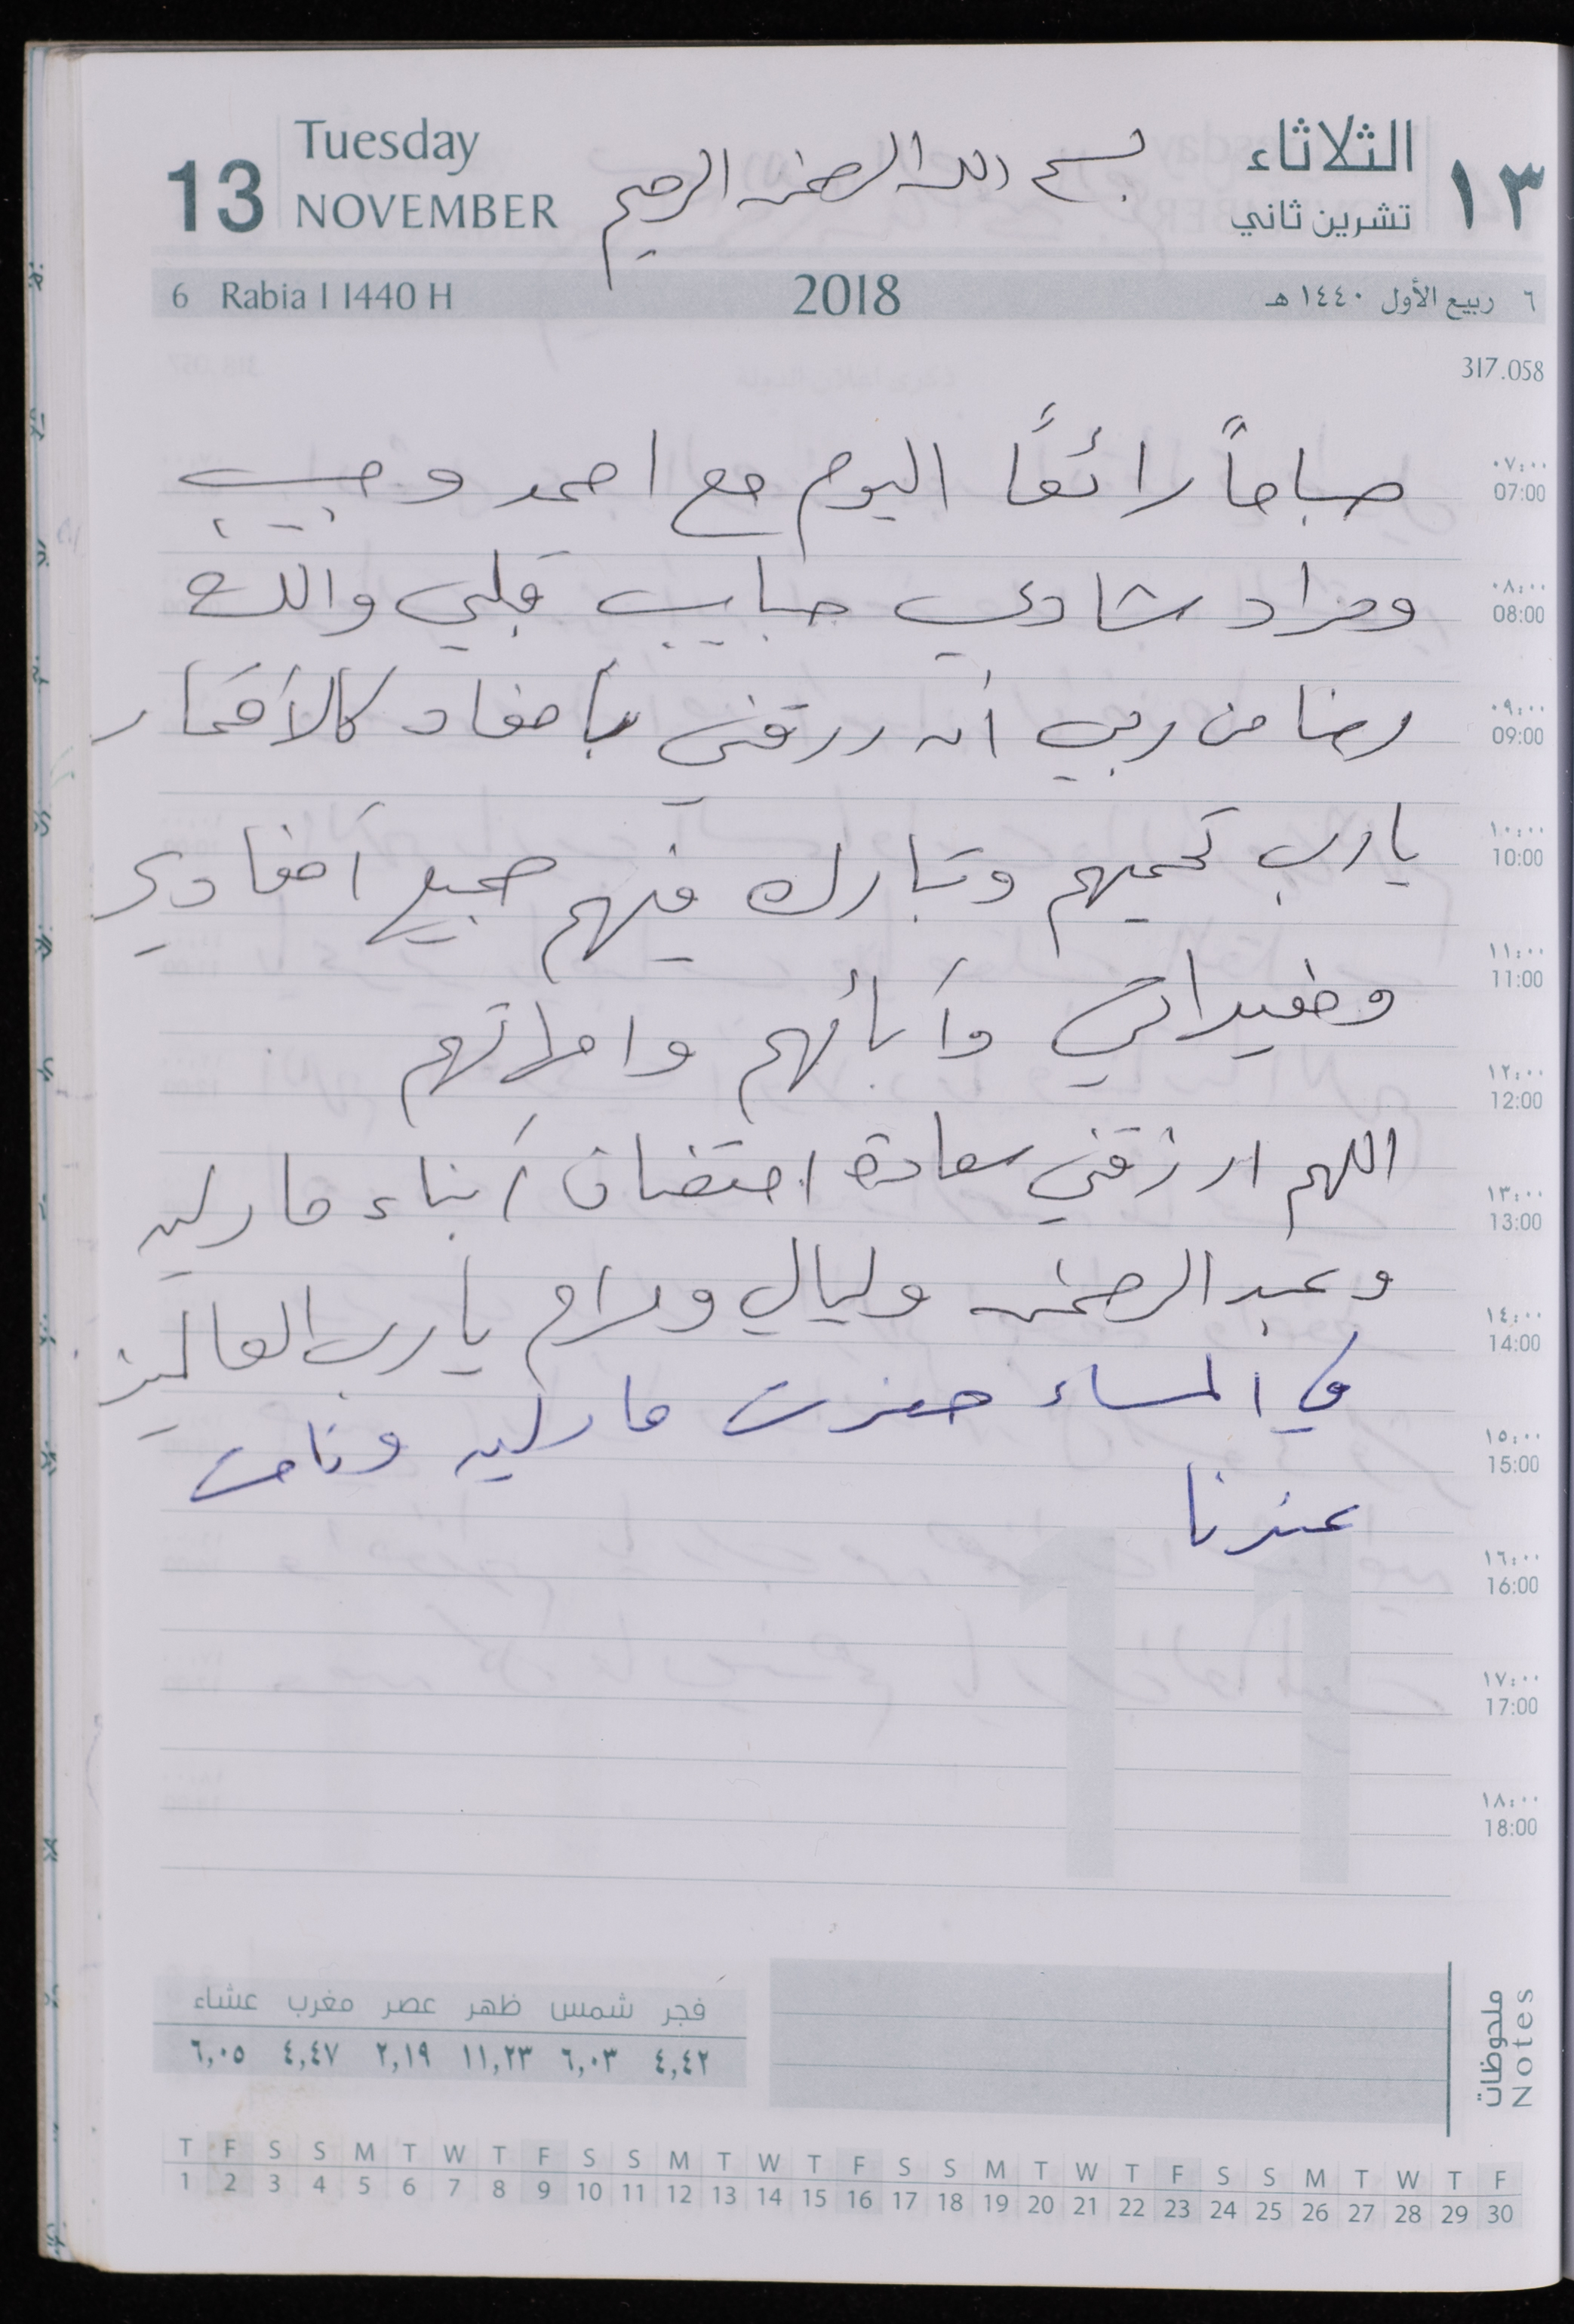 13
Tuesday
NOVEMBER
بسم الله الرحمن الرحيم
الثلاثاء
تشرين ثاني
١٣
6 Rabia I 1440 H
2018
٦ ربيع الأول ١٤٤٠ هـ
317.058
صباحاً رائعًا اليوم مع احمد وحبيب
ومراد شادي حبايب قلبي والله
رضا من ربي أنه رزقني بأحفاد كالأقمار
يارب تحميهم وتبارك فيهم جميع أحفادي
وحفيداتي وأبائهم وامهاتهم
اللهم ارزقني سعادة احتضان أبناء مارليه
وعبد الرحمن وليالي ومرام يارب العالمين
في المساء حضرت مارليه ونامت
عندنا
٠٧:٠٠
07:00
٠٨:٠٠
08:00
٠٩:٠٠
09:00
١٠:٠٠
10:00
١١:٠٠
11:00
١٢:٠٠
12:00
١٣:٠٠
13:00
١٤:٠٠
14:00
١٥:٠٠
15:00
١٦:٠٠
16:00
١٧:٠٠
17:00
١٨:٠٠
18:00
11
ملحوظات
Notes
فجر شمس ظهر عصر مغرب عشاء
٤,٤٢ ٦,٠٣ ١١,٢٣ ٢,١٩ ٤,٤٧ ٦,٠٥
T F S S M T W T F S S M T W T F S S M T W T F S S M T W T F
1 2 3 4 5 6 7 8 9 10 11 12 13 14 15 16 17 18 19 20 21 22 23 24 25 26 27 28 29 30